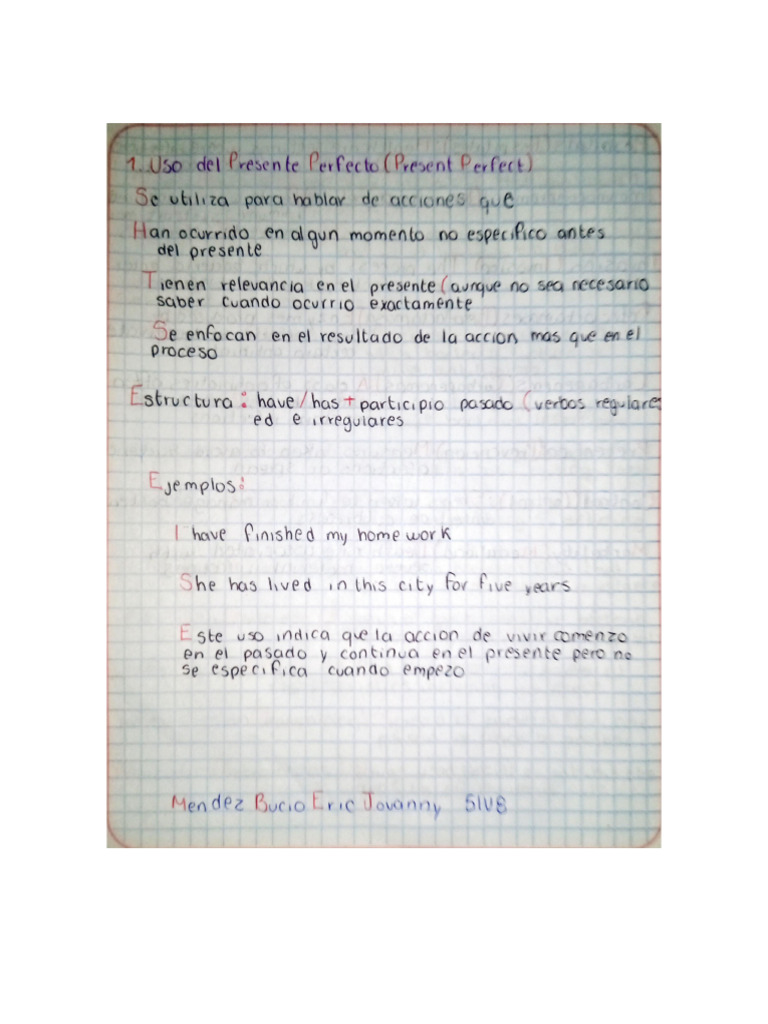 1. Uso del Presente Perfecto (Present Perfect)
Se utiliza para hablar de acciones que
Han ocurrido en algun momento no especifico antes
del presente
Tienen relevancia en el presente (aunque no sea necesario
saber cuando ocurrio exactamente
Se enfocan en el resultado de la accion mas que en el
proceso
Estructura: have/has + participio pasado (verbos regulares
ed e irregulares
Ejemplos:
I have finished my homework
She has lived in this city for five years
Este uso indica que la accion de vivir comenzo
en el pasado y continua en el presente pero no
se especifica cuando empezo
Mendez Bucio Eric Jovanny 51V8